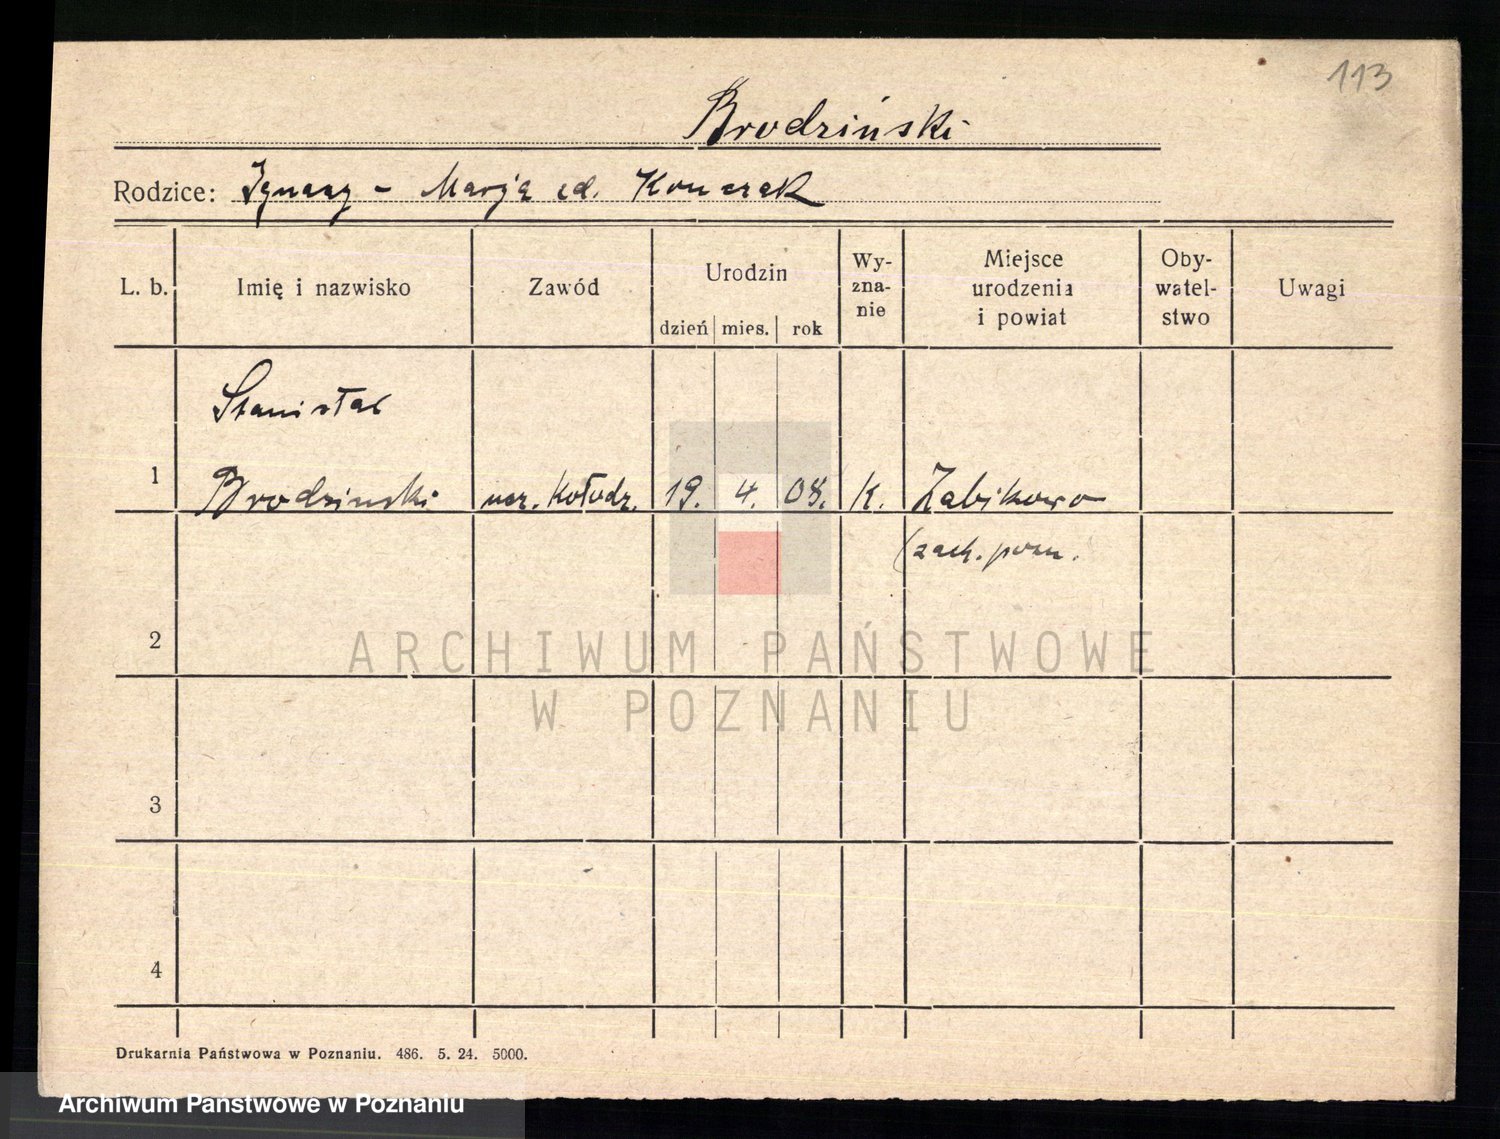 113
Brodziński
Rodzice: Ignacy - Marja zd. Konczak
L. b.
Imię i nazwisko
Zawód
Urodzin
dzień mies. rok
Wy-
zna-
nie
Miejsce
urodzenia
i powiat
Oby-
watel-
stwo
Uwagi
Stanisław
1 Brodzinski ucz. Kołodz. 19. 4. 08. K. Żabikowo
(zach. pozn.
2
ARCHIWUM PAŃSTWOWE
W POZNANIU
3
4
Drukarnia Państwowa w Poznaniu. 486. 5. 24. 5000.
Archiwum Państwowe w Poznaniu